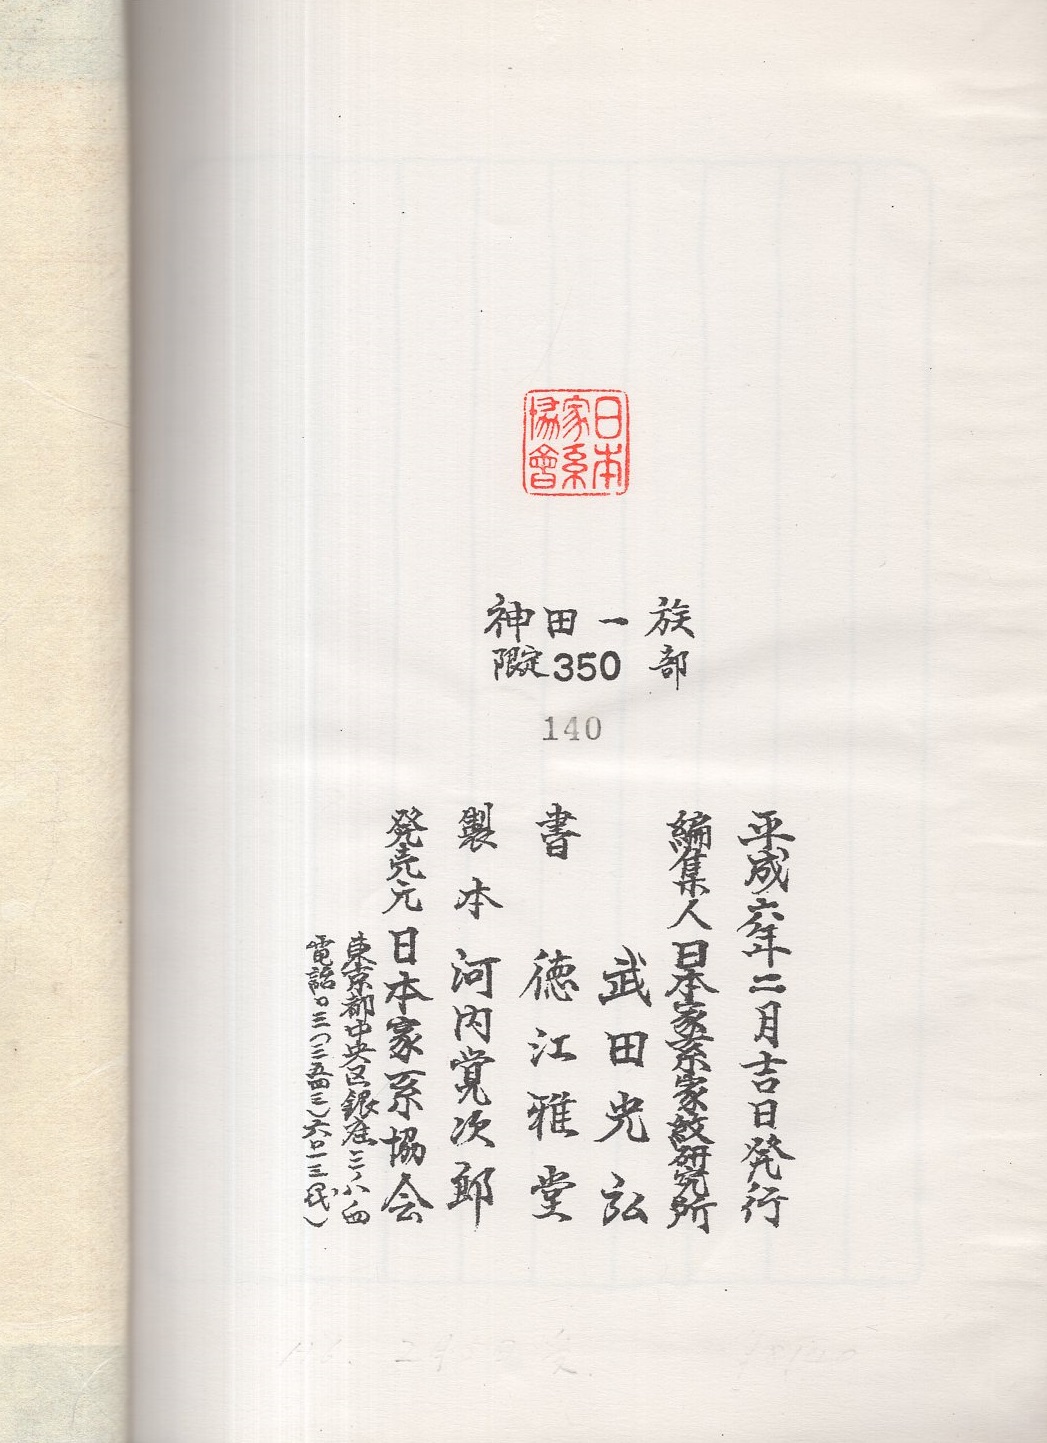 日本
家系
協會
神田一族
限定350部
140
平成六年二月吉日発行
編集人 日本家系家紋研究所
武田光弘
書 徳江雅堂
製本 河内覚次郎
発売元 日本家系協会
東京都中央区銀座三ノ八ノ四
電話〇三(三五四三)六〇一三(代)